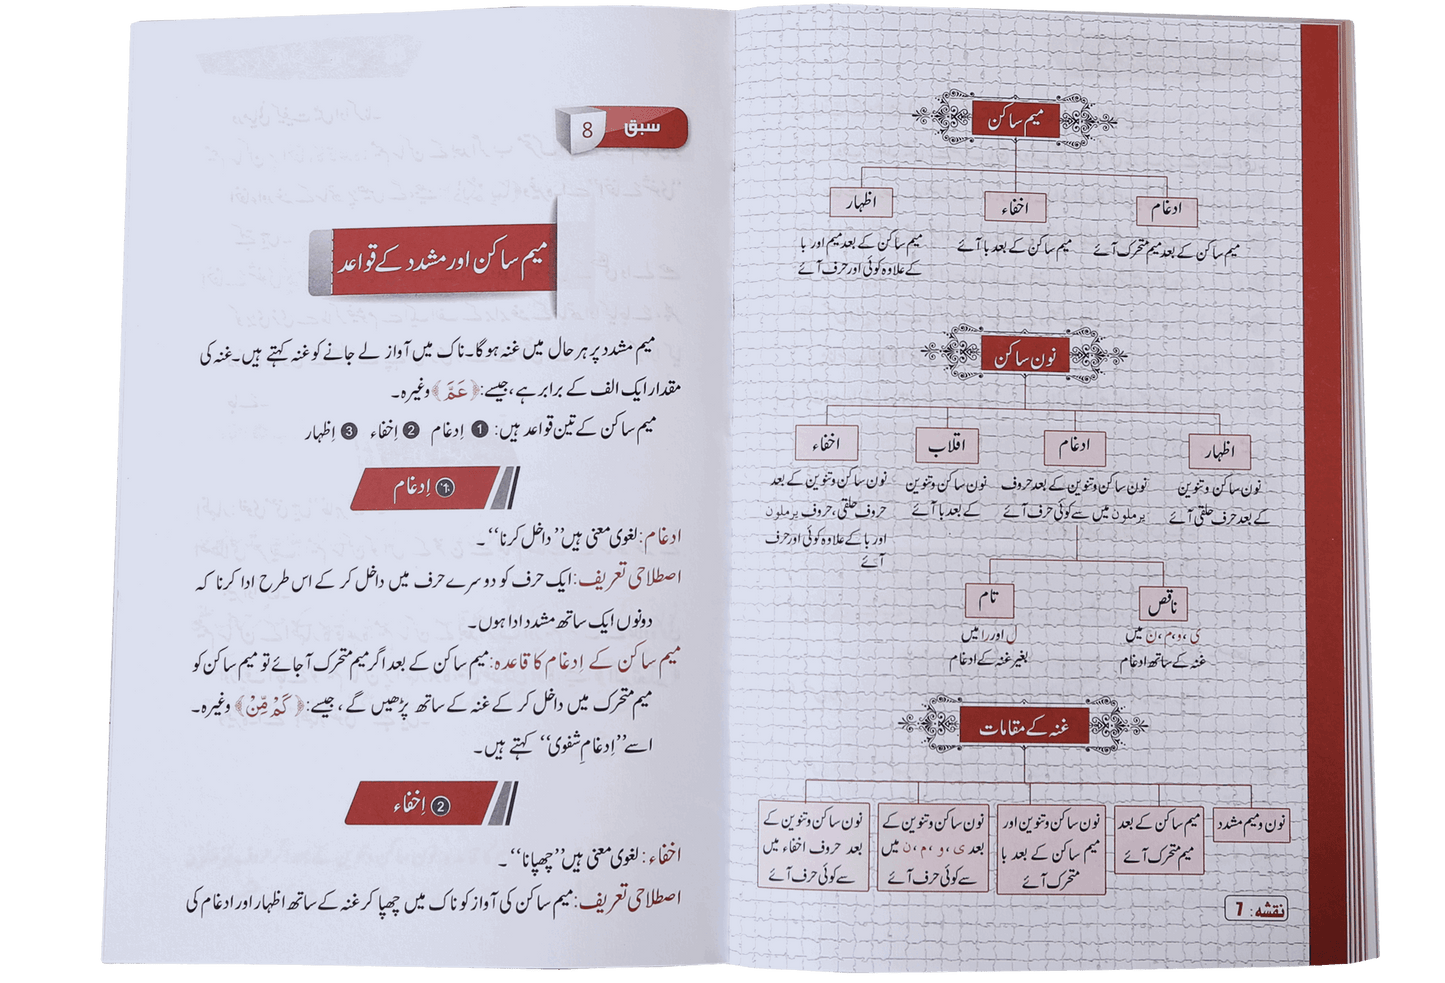 میم ساکن
ادغام
اخفاء
اظہار
میم ساکن کے بعد میم متحرک آئے
میم ساکن کے بعد با آئے
میم ساکن کے بعد میم اور با
کے علاوہ کوئی اور حرف آئے
نون ساکن
اظہار
ادغام
اقلاب
اخفاء
نون ساکن و تنوین
کے بعد حرف حلقی آئے
نون ساکن و تنوین کے بعد حروف
یرملون میں سے کوئی حرف آئے
نون ساکن و تنوین
کے بعد با آئے
نون ساکن و تنوین کے بعد
حروف حلقی، حروف یرملون
اور با کے علاوہ کوئی اور حرف
آئے
ناقص
تام
ی، و، م، ن میں
غنہ کے ساتھ ادغام
ل اور را میں
بغیر غنہ کے ادغام
غنہ کے مقامات
نون و میم مشدد
میم ساکن کے بعد
میم متحرک آئے
نون ساکن و تنوین اور
میم ساکن کے بعد با
متحرک آئے
نون ساکن و تنوین کے
بعد ی، و، م، ن میں
سے کوئی حرف آئے
نون ساکن و تنوین کے
بعد حروف اخفاء میں
سے کوئی حرف آئے
نقشہ: 7
سبق 8
میم ساکن اور مشدد کے قواعد
میم مشدد پر ہر حال میں غنہ ہوگا۔ ناک میں آواز لے جانے کو غنہ کہتے ہیں۔ غنہ کی
مقدار ایک الف کے برابر ہے، جیسے: ﴿عَمَّ﴾ وغیرہ۔
میم ساکن کے تین قواعد ہیں: 1 اِدغام 2 اِخفاء 3 اِظہار
1 اِدغام
ادغام: لغوی معنی ہیں ’’داخل کرنا‘‘۔
اصطلاحی تعریف: ایک حرف کو دوسرے حرف میں داخل کر کے اس طرح ادا کرنا کہ
دونوں ایک ساتھ مشدد ادا ہوں۔
میم ساکن کے اِدغام کا قاعدہ: میم ساکن کے بعد اگر میم متحرک آجائے تو میم ساکن کو
میم متحرک میں داخل کر کے غنہ کے ساتھ پڑھیں گے، جیسے: ﴿كَمْ مِّنْ﴾ وغیرہ۔
اسے ’’اِدغامِ شفوی‘‘ کہتے ہیں۔
2 اِخفاء
اخفاء: لغوی معنی ہیں ’’چھپانا‘‘۔
اصطلاحی تعریف: میم ساکن کی آواز کو ناک میں چھپا کر غنہ کے ساتھ اظہار اور ادغام کی